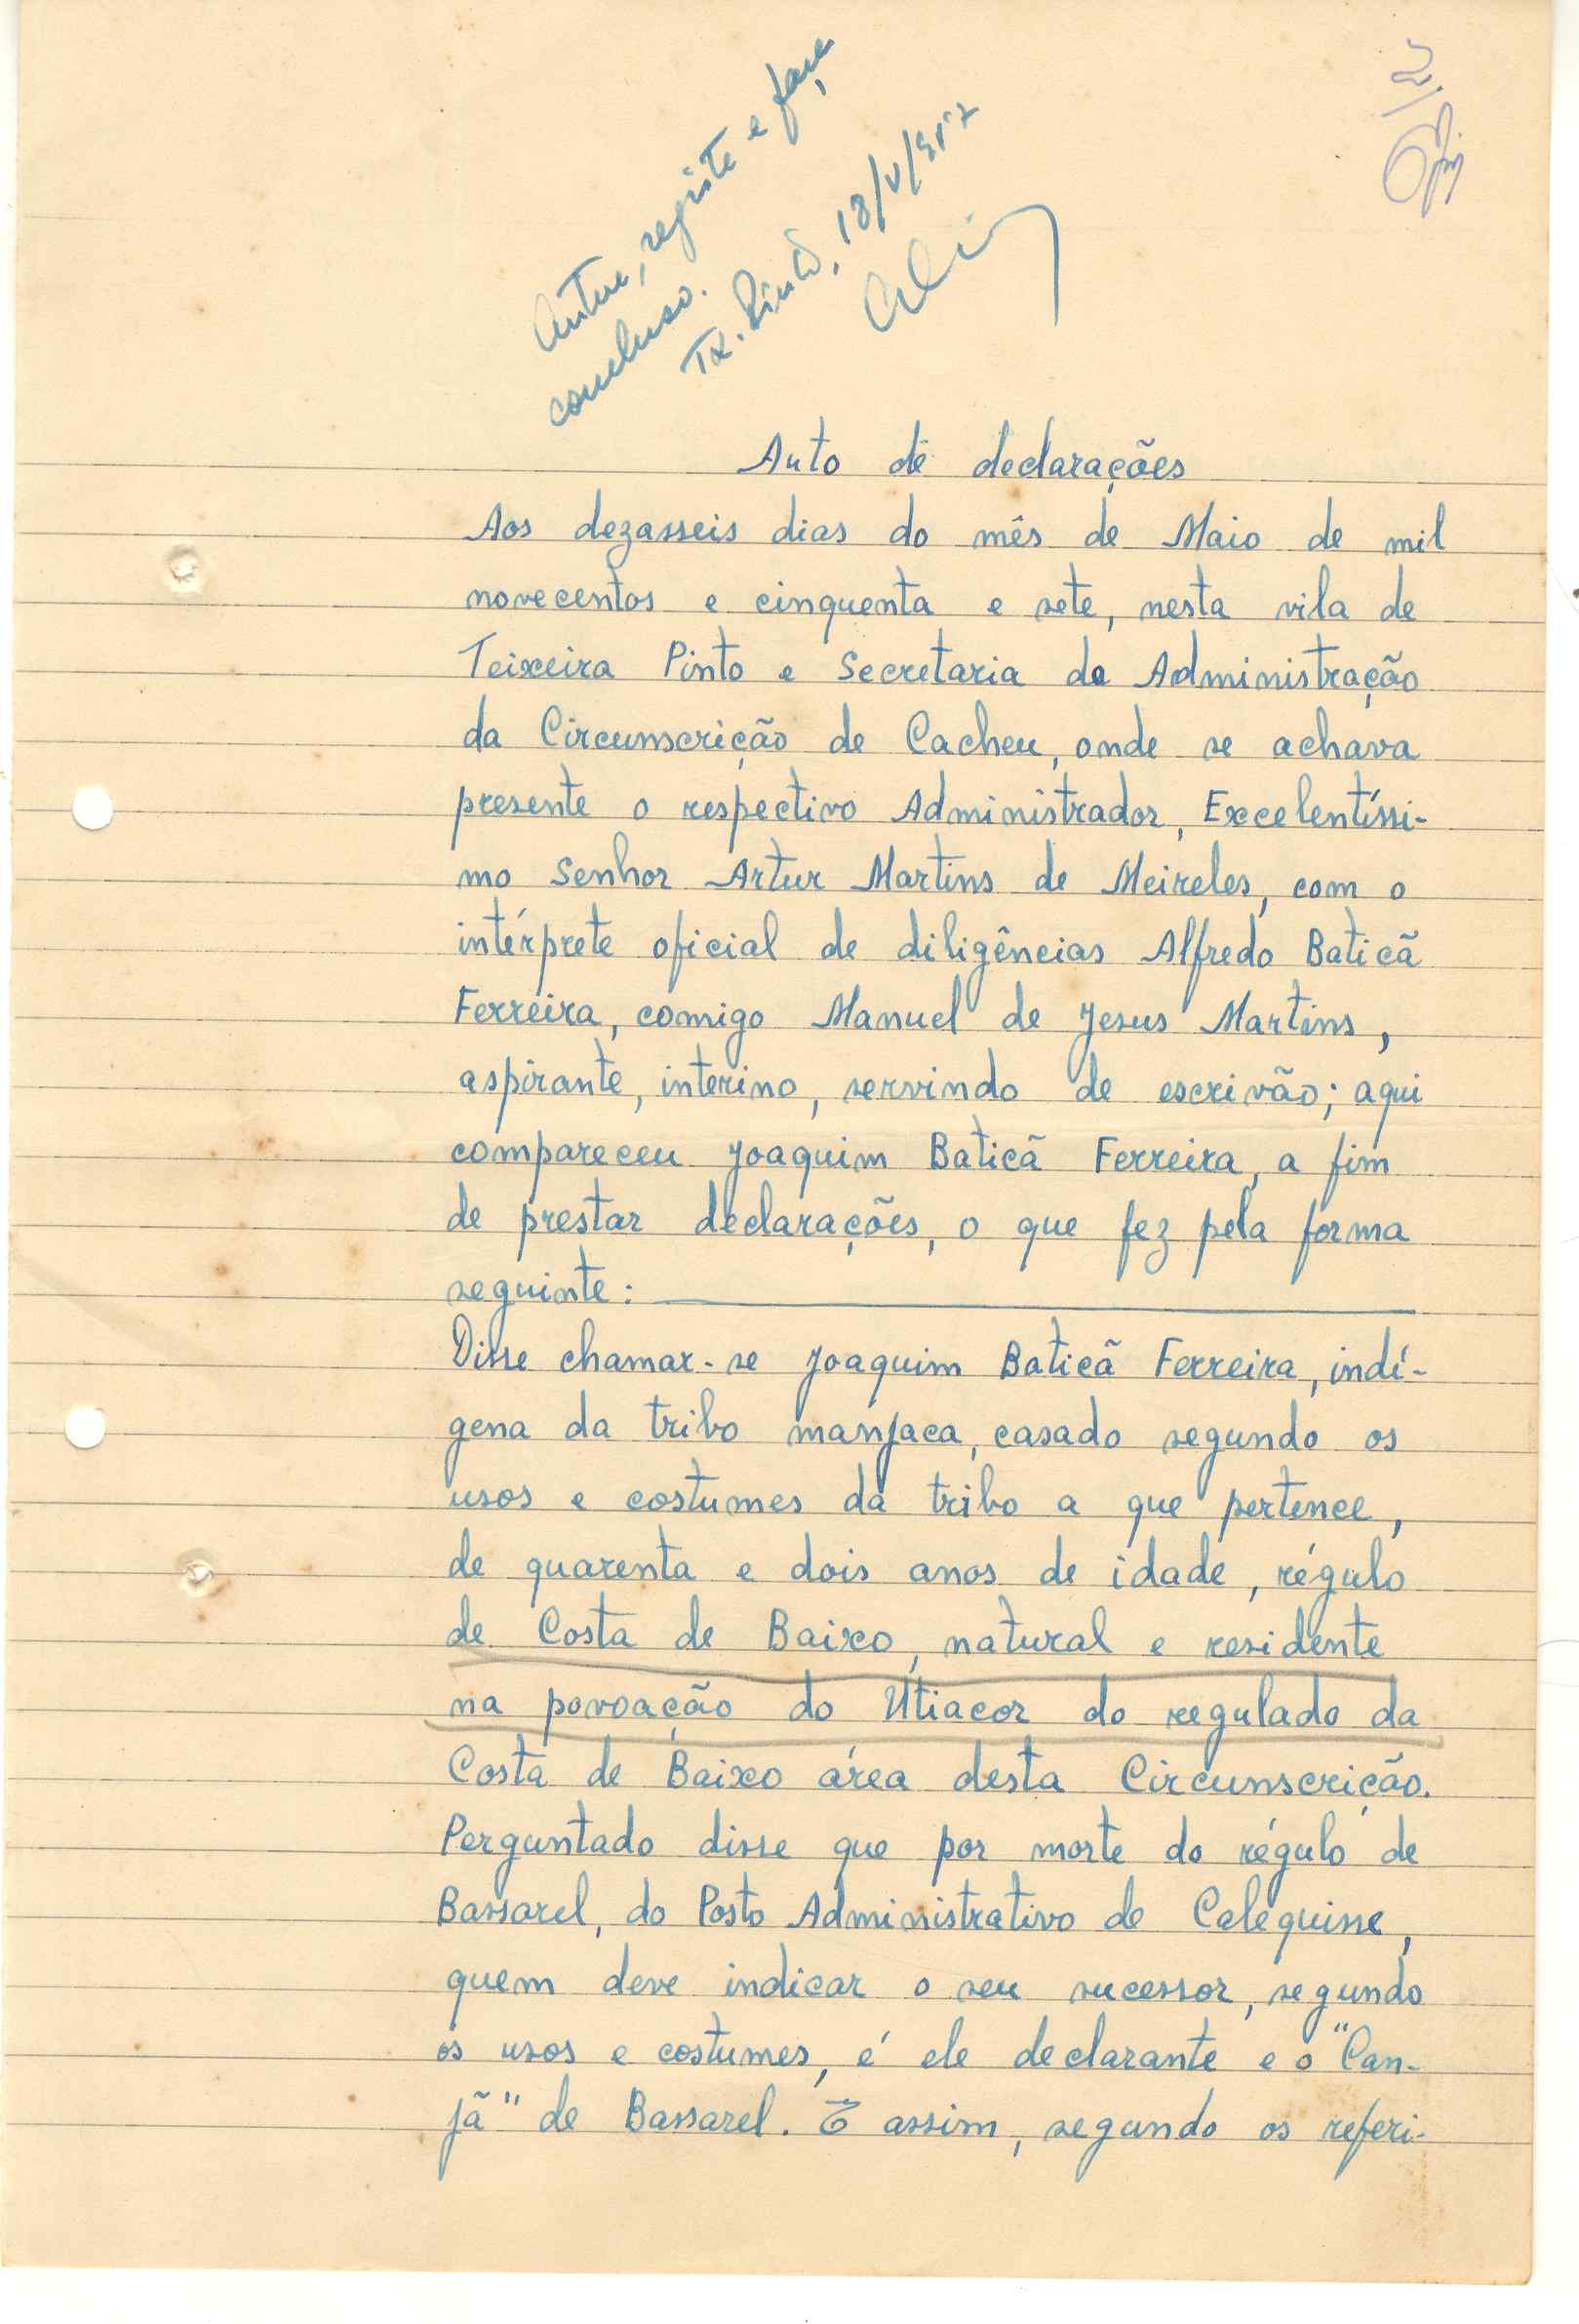 Autue, registe e faça
concluso.
Tx. Pinto, 18/V/957
Auto de declarações
Aos dezasseis dias do mês de Maio de mil
novecentos e cinquenta e sete, nesta vila de
Teixeira Pinto e Secretaria da Administração
da Circunscrição de Cacheu, onde se achava
presente o respectivo Administrador, Excelentíssi-
mo Senhor Artur Martins de Meireles, com o
intérprete oficial de diligências Alfredo Baticã
Ferreira, comigo Manuel de Jesus Martins,
aspirante, interino, servindo de escrivão; aqui
compareceu Joaquim Baticã Ferreira, a fim
de prestar declarações, o que fez pela forma
seguinte:
Disse chamar-se Joaquim Baticã Ferreira, indí-
gena da tribo manjaca, casado segundo os
usos e costumes da tribo a que pertence,
de quarenta e dois anos de idade, régulo
de Costa de Baixo, natural e residente
na povoação do Utiacor do regulado da
Costa de Baixo área desta Circunscrição.
Perguntado disse que por morte do régulo de
Bassarel, do Posto Administrativo de Calequisse,
quem deve indicar o seu sucessor, segundo
os usos e costumes, é ele declarante e o "Can-
jã" de Bassarel. E assim, segundo os referi-